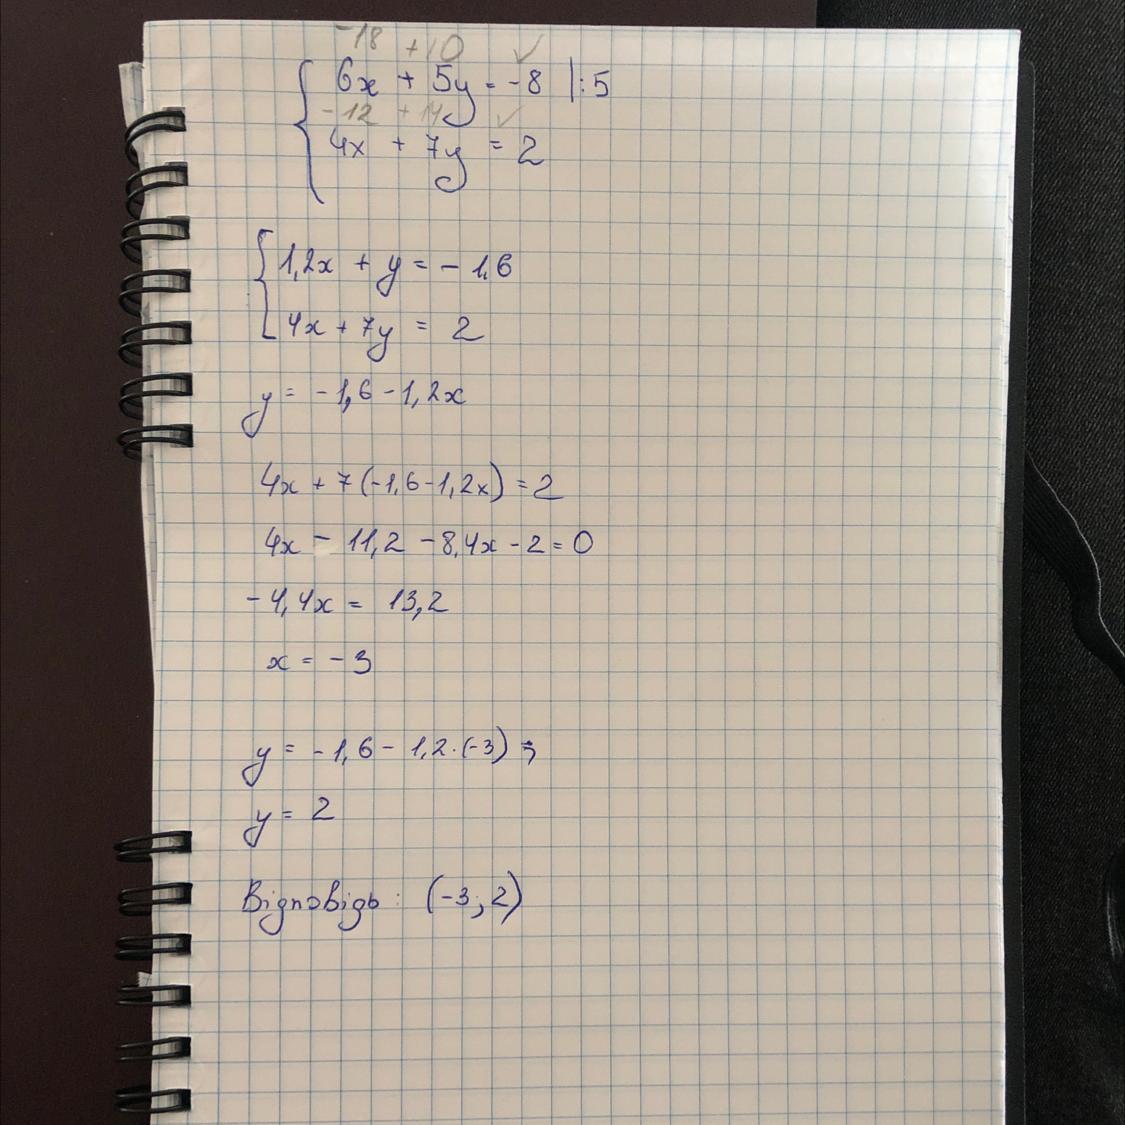 -18 +10 ✓
6x + 5y = -8 |:5
-12 +14 ✓
4x + 7y = 2
1,2x + y = - 1,6
4x + 7y = 2
y = -1,6 - 1,2x
4x + 7(-1,6-1,2x) = 2
4x - 11,2 - 8,4x - 2 = 0
-4,4x = 13,2
x = -3
y = -1,6 - 1,2·(-3) ;
y = 2
Відповідь: (-3; 2)